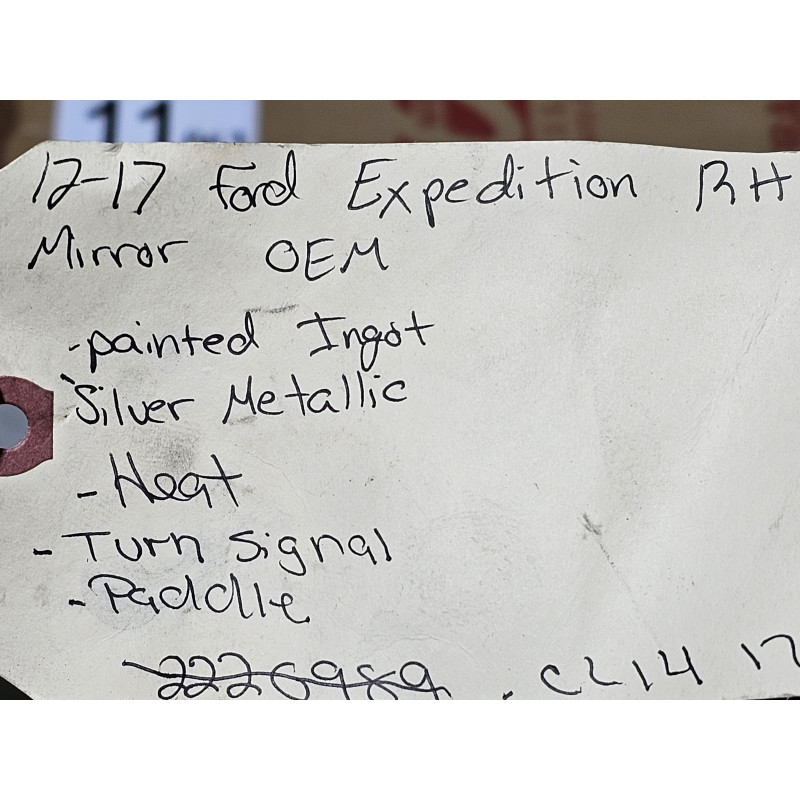 11
12-17 Ford Expedition RH
Mirror OEM
-painted Ingot
Silver Metallic
-Heat
-Turn Signal
-Paddle
2226989 . CL14 17